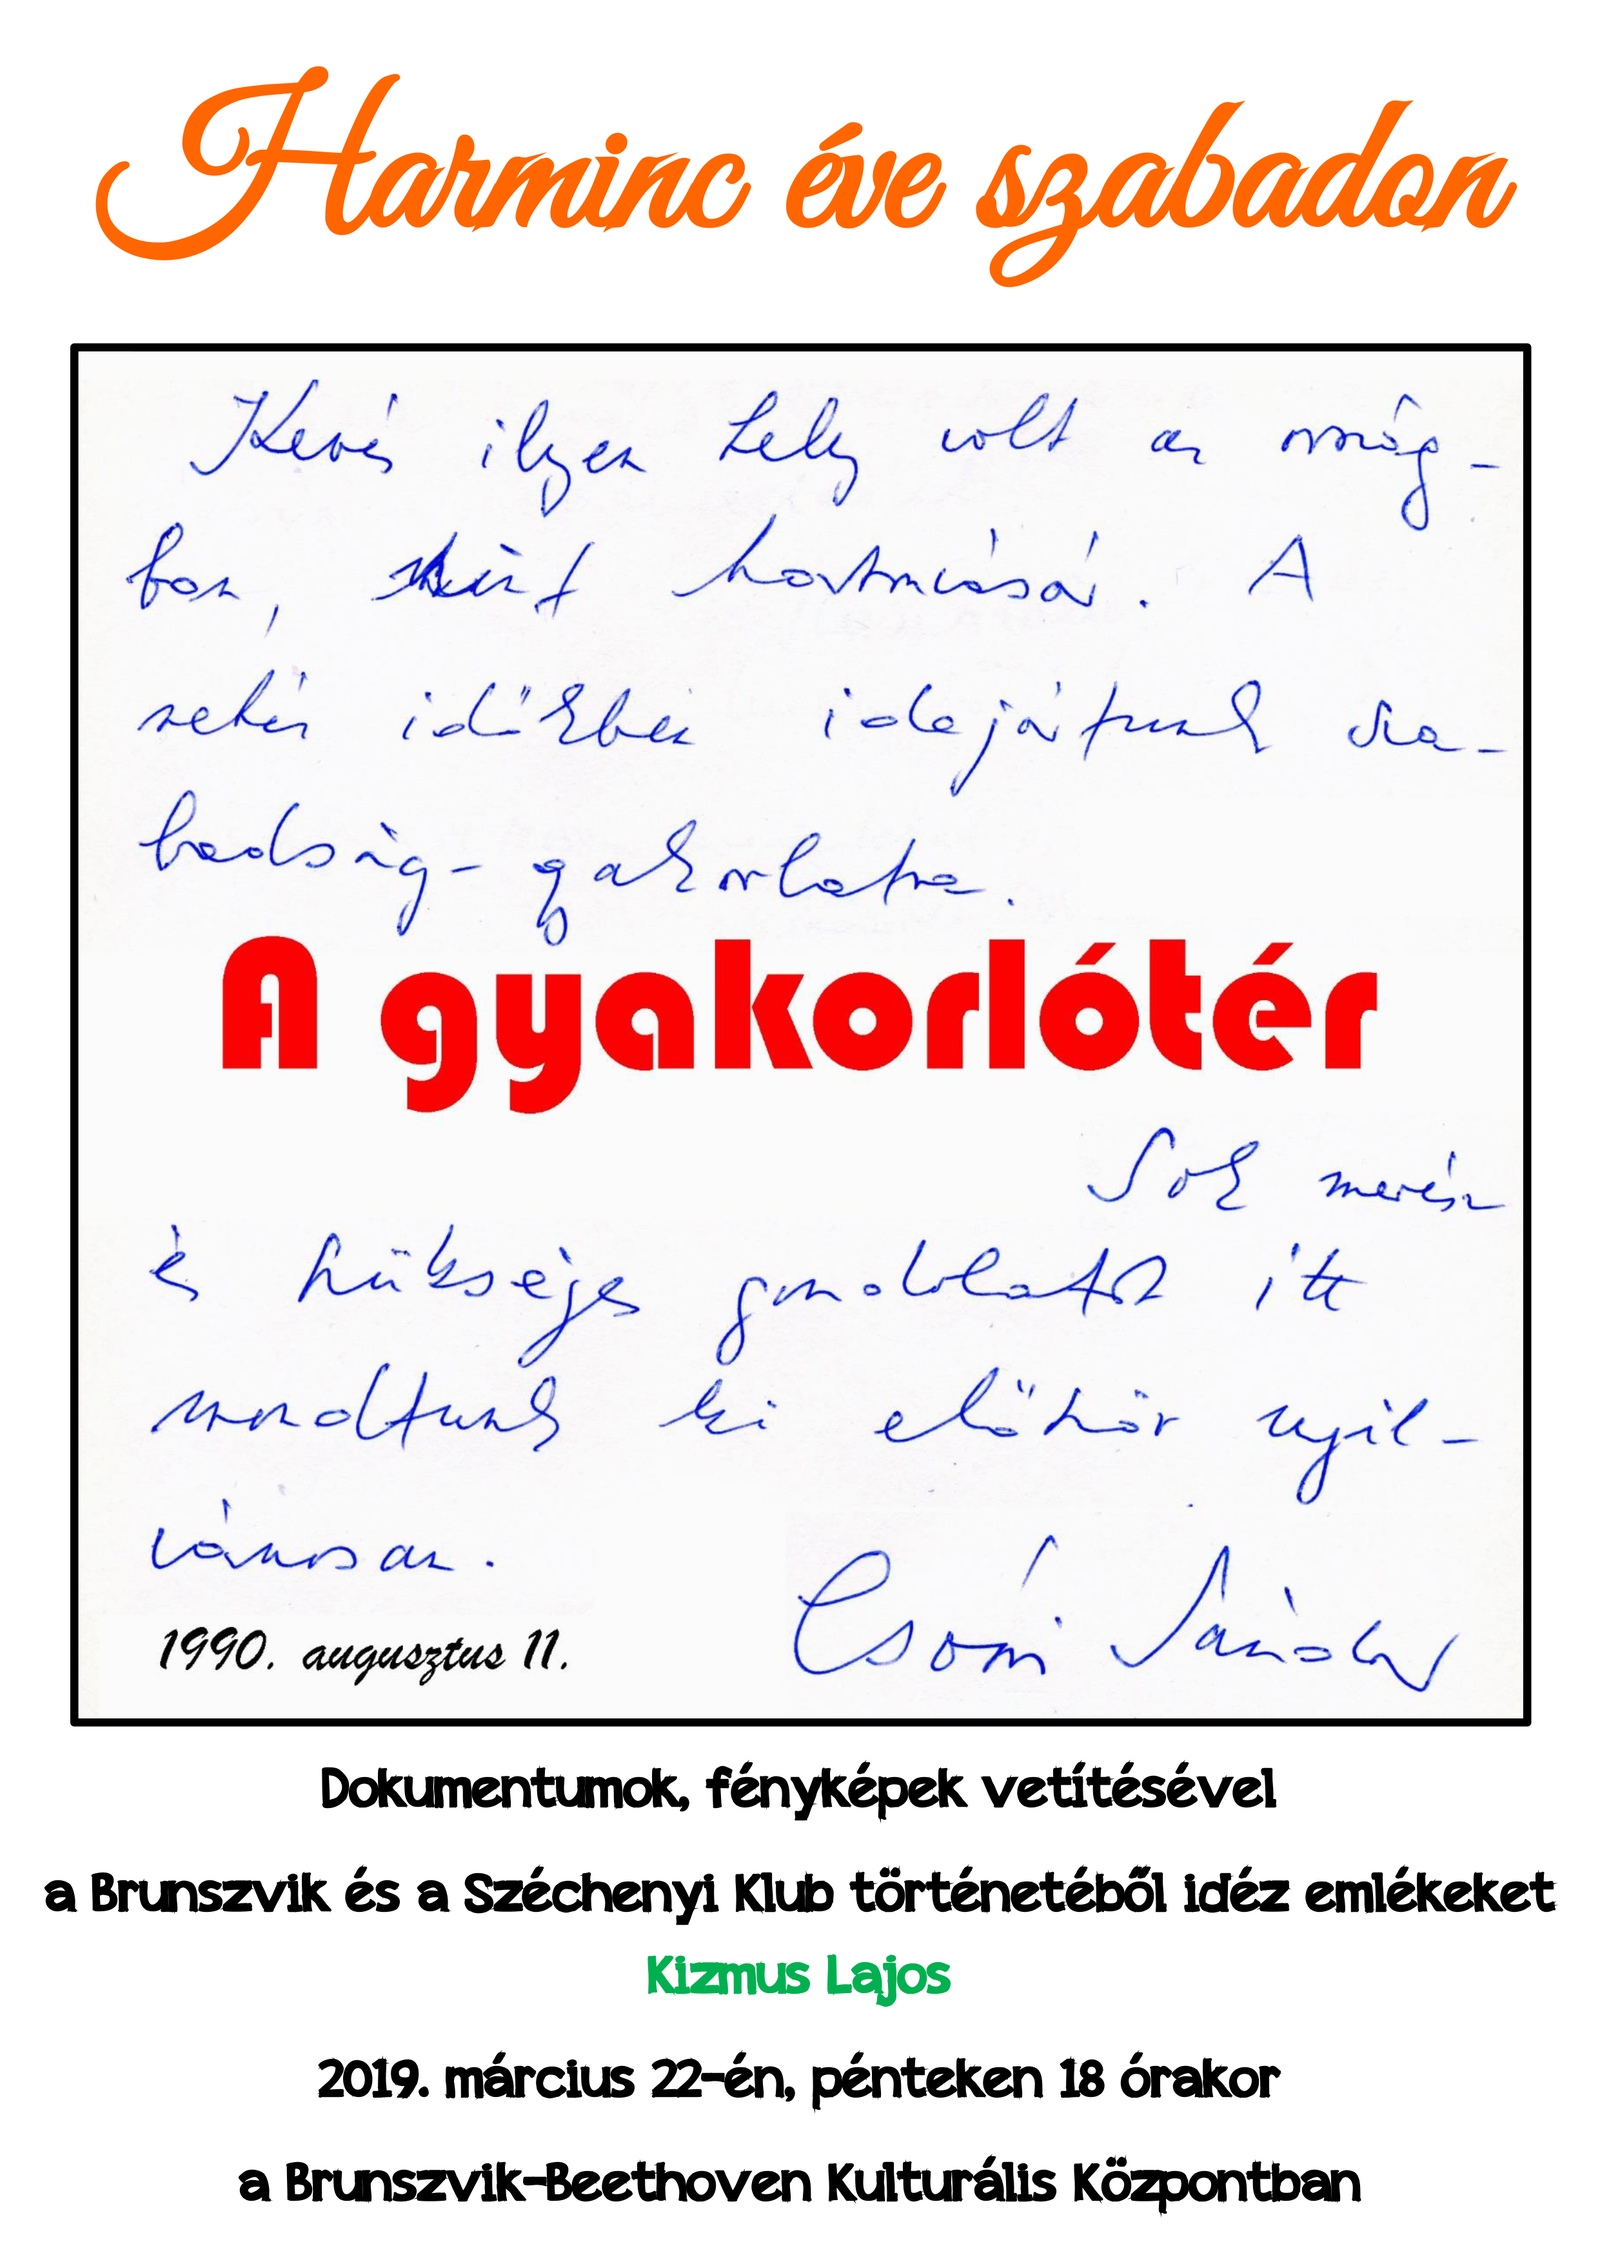 Harminc éve szabadon
Kevés ilyen hely volt azország-
ban, mint Martonvásár. A
nehéz időkben idejártunk sza-
badság-gyakorlatra.
A gyakorlótér
Sok merész
és szükséges gondolatot itt
mondtunk ki először nyil-
vánosan.
1990. augusztus 11.
Csoóri Sándor
Dokumentumok, fényképek vetítésével
a Brunszvik és a Széchenyi Klub történetéből idéz emlékeket
Kizmus Lajos
2019. március 22-én, pénteken 18 órakor
a Brunszvik-Beethoven Kulturális Központban